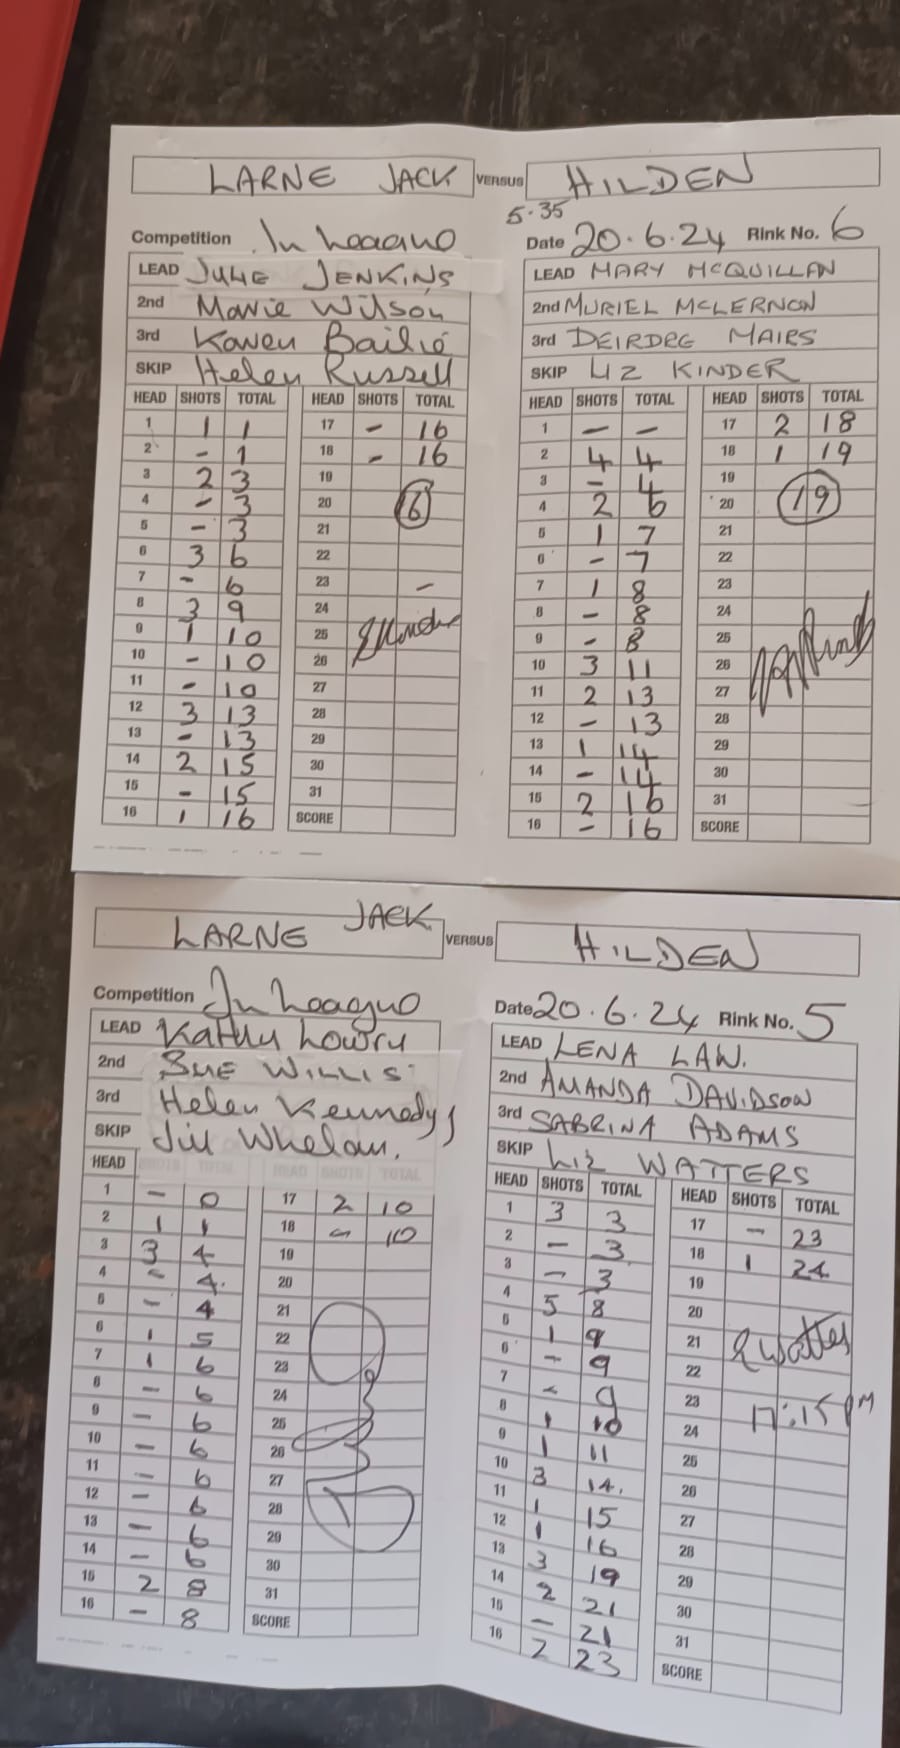 LARNE JACK VERSUS HILDEN
5.35
Competition Date 20.6.24 Rink No. 6
LEAD JULIE JENKINS LEAD MARY MCQUILLAN
2nd Marie Wilson 2nd MURIEL MCLERNON
3rd Karen Bailie 3rd DEIRDRE MAIRS
SKIP Helen Russell SKIP LIZ KINDER
HEAD SHOTS TOTAL HEAD SHOTS TOTAL HEAD SHOTS TOTAL HEAD SHOTS TOTAL
1 1 1 17 - 16 1 - - 17 2 18
2 - 1 18 - 16 2 4 4 18 1 19
3 2 3 19 3 - 4 19
4 - 3 20 16 4 2 6 20 19
5 - 3 21 5 1 7 21
6 3 6 22 6 - 7 22
7 - 6 23 - 7 1 8 23
8 3 9 24 8 - 8 24
9 1 10 25 9 - 8 25
10 - 10 26 10 3 11 26
11 - 10 27 11 2 13 27
12 3 13 28 12 - 13 28
13 - 13 29 13 1 14 29
14 2 15 30 14 - 14 30
15 - 15 31 15 2 16 31
16 1 16 SCORE 16 - 16 SCORE
LARNE JACK VERSUS HILDEN
Competition Date 20.6.24 Rink No. 5
LEAD Kathy Lowry LEAD LENA LAW.
2nd SUE WILLIS 2nd AMANDA DAVIDSON
3rd Helen Kennedy 3rd SABRINA ADAMS
SKIP Jill Whelan. SKIP Liz WATTERS
HEAD SHOTS TOTAL HEAD SHOTS TOTAL HEAD SHOTS TOTAL HEAD SHOTS TOTAL
1 - 0 17 2 10 1 3 3 17 - 23
2 1 1 18 - 10 2 - 3 18 1 24
3 3 4 19 3 - 3 19
4 - 4. 20 4 5 8 20
5 - 4 21 5 1 9 21 Watters
6 1 5 22 6 - 9 22
7 1 6 23 7 - 9 23 17:15PM
8 - 6 24 8 1 10 24
9 - 6 25 9 1 11 25
10 - 6 26 10 3 14. 26
11 - 6 27 11 1 15 27
12 - 6 28 12 1 16 28
13 - 6 29 13 3 19 29
14 - 6 30 14 2 21 30
15 2 8 31 15 - 21 31
16 - 8 SCORE 16 2 23 SCORE